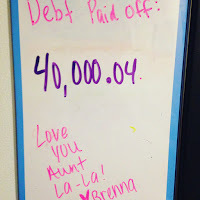 Debt Paid off:
40,000.04
Love
You
Aunt
La-La!
♥Brenna